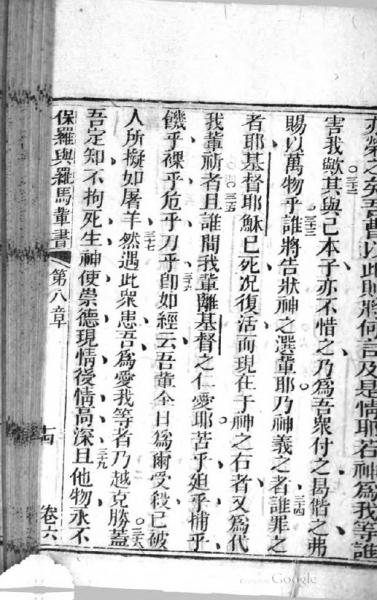 亦榮之矣吾曹以此則將何言及是情耶若神為我等誰
害我歟三二其與己本子亦不惜之乃為吾眾付之曷將之弗
賜以萬物乎三三誰將告狀神之選輩耶乃神義之者三四誰罪之
者耶基督耶穌已死況復活而現在于神之右者又為代
我輩祈者且三五誰間我輩離基督之仁愛耶苦乎廹乎捕乎
饑乎裸乎危乎刀乎三六卽如經云吾輩今日為爾受殺已被
人所擬如屠羊三七然遇此衆患吾爲愛我等者乃越克勝三八蓋
吾定知不拘死生神使崇德現情後情三九高深且他物永不
保羅與羅馬輩書 第八章 十四 卷六
Google